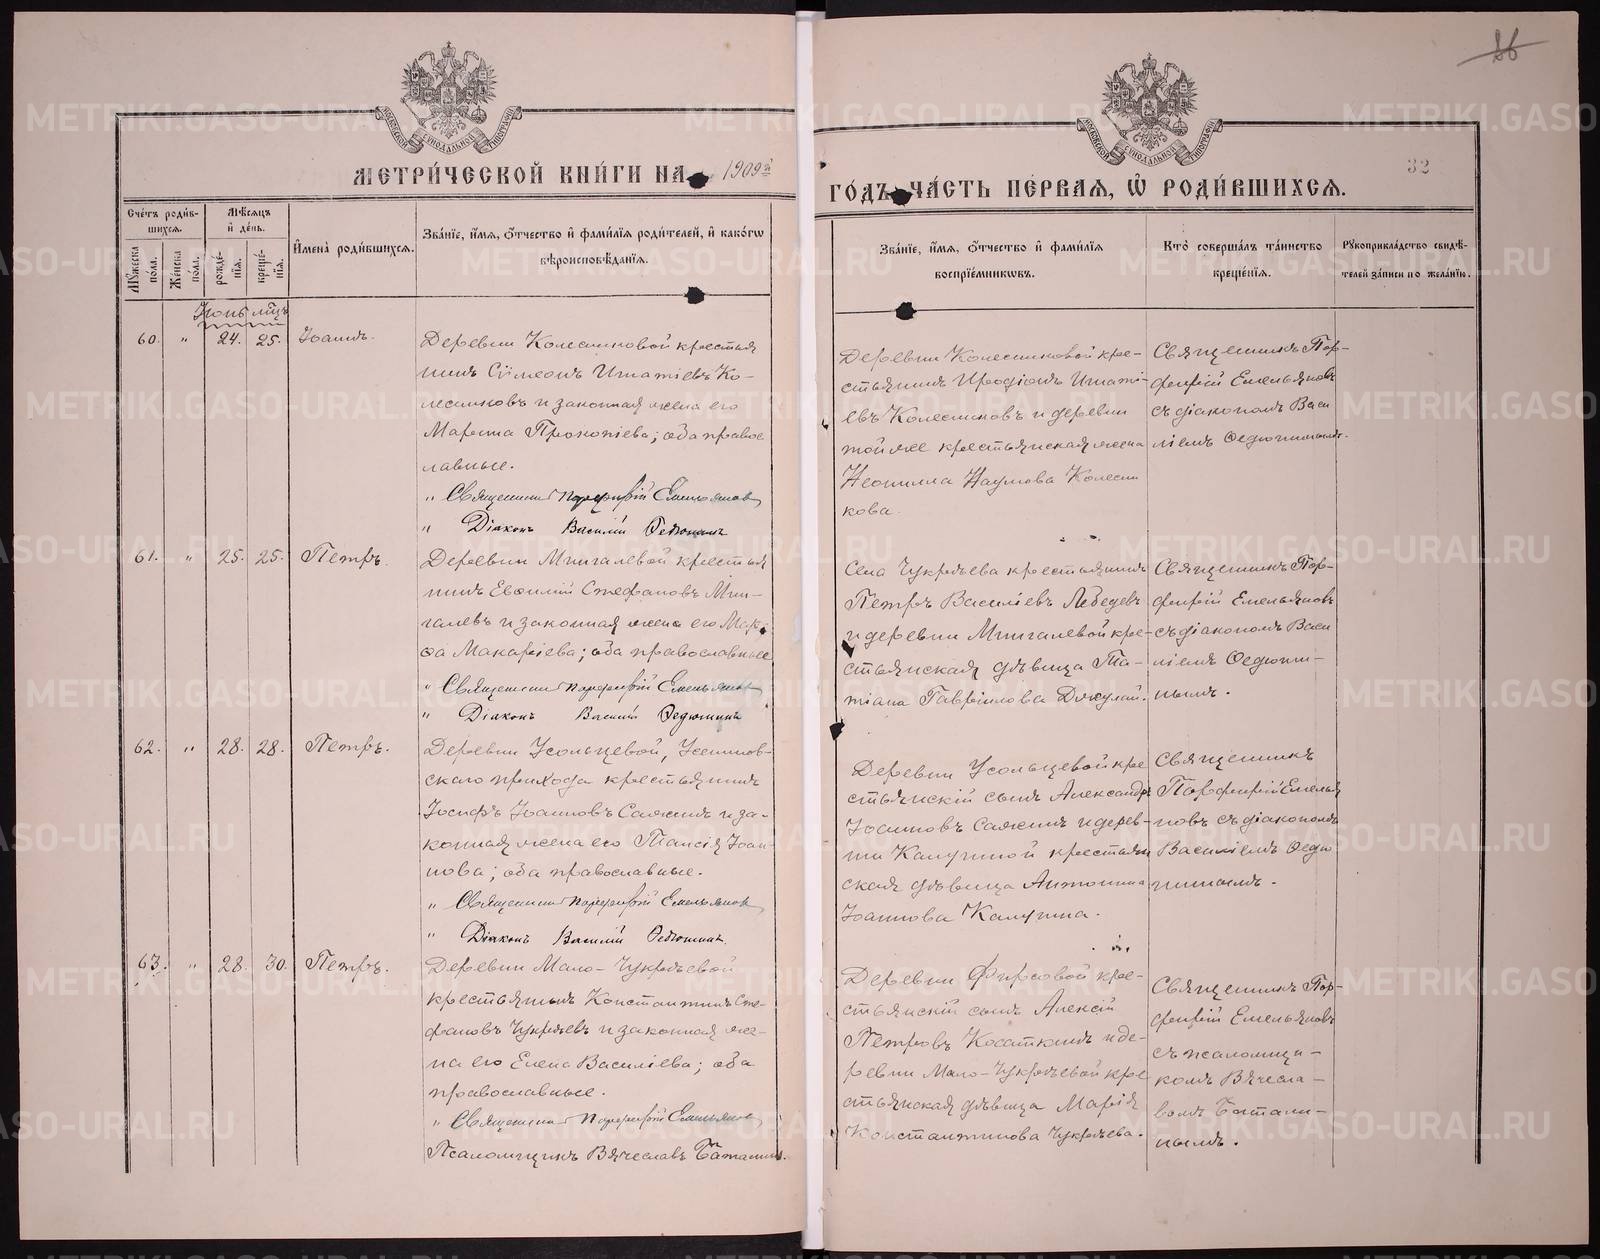 86
32
МОСКОВСКОЙ СѴНОДАЛЬНОЙ ТИПОГРАФІИ
МОСКОВСКОЙ СѴНОДАЛЬНОЙ ТИПОГРАФІИ
МЕТРИ́ЧЕСКОЙ КНИ́ГИ НА 1909й
ГО́ДЪ ЧА́СТЬ ПЕ́РВАЯ, Ѡ РОДИ́ВШИХСЯ.
Сче́тъ роди́в-
шихся.
Мѣсяцъ
и де́нь.
Му́жеска по́ла.
Же́нска по́ла.
рожде́-
нїя.
креще́-
нїя.
Имена̀ роди́вшихся.
Зва́нїе, и́мя, о́тчество и фами́лїя роди́телей, и како́гѡ
вѣроисповѣ́данїя.
Зва́нїе, и́мя, о́тчество и фами́лїя
воспрїе́мникѡвъ.
Кто̀ соверша́лъ та́инство
креще́нїя.
Рꙋкоприкла́дство свидѣ́-
телей за́писи по жела́нїю.
Іюнь мѣцъ
60. " 24. 25. Іоаннъ.
Деревни Колесниковой крестья
нинъ Сѵмеонъ Игнатіевъ Ко-
лесниковъ и законная жена его
Марина Прокопіева; оба право
славные.
" Священникъ Порфирій Емельяновъ
" Діаконъ Василій Федюнинъ
Деревни Колесниковой кре-
стьянинъ Иродіонъ Игнаті-
евъ Колесниковъ и деревни
той же крестьянская жена
Неонилла Наумова Колесни
кова.
Священникъ Пор-
фирій Емельяновъ
съ діакономъ Васи
ліемъ Федюнинымъ.
61. " 25. 25. Петръ.
Деревни Мингалевой крестья
нинъ Евѳимій Стефановъ Мин-
галевъ и законная жена его Мар-
ѳа Макаріева; оба православные
" Священникъ Порфирій Емельяновъ
" Діаконъ Василій Федюнинъ
Села Чукреева крестьянинъ
Петръ Василіевъ Лебедевъ
и деревни Мингалевой кре-
стьянская дѣвица Та-
тіана Гавріилова
Священникъ Пор-
фирій Емельяновъ
съ діакономъ Васи
ліемъ Федюни-
нымъ.
62. " 28. 28. Петръ.
Деревни Усольцевой,
скаго прихода крестьянинъ
Іосифъ Іоанновъ Сажинъ и за-
конная жена его Таисія Іоан-
нова; оба православные.
" Священникъ Порфирій Емельяновъ
" Діаконъ Василій Федюнинъ.
Деревни Усольцевой кре
стьянскій сынъ Александръ
Іоанновъ Сажинъ и дерев-
ни Калугиной крестьян
ская дѣвица Антонина
Іоаннова Калугина.
Священникъ
Порфирій Емелья
новъ съ діакономъ
Василіемъ Федю
нинымъ.
63. " 28. 30. Петръ.
Деревни Мало-Чукреевой
крестьянинъ Константинъ Сте-
фановъ Чукреевъ и законная же-
на его Елена Василіева; оба
православные.
" Священникъ Порфирій Емельяновъ
Псаломщикъ Вячеславъ Баталинъ.
Деревни Фирсовой кре-
стьянскій сынъ Алексій
Петровъ Косаткинъ и де-
ревни Мало-Чукреевой кре
стьянская дѣвица Марія
Константинова Чукреева.
Священникъ Пор-
фирій Емельяновъ
съ псаломщи-
комъ Вячесла-
вомъ Батали-
нымъ.
METRIKI.GASO-URAL.RU